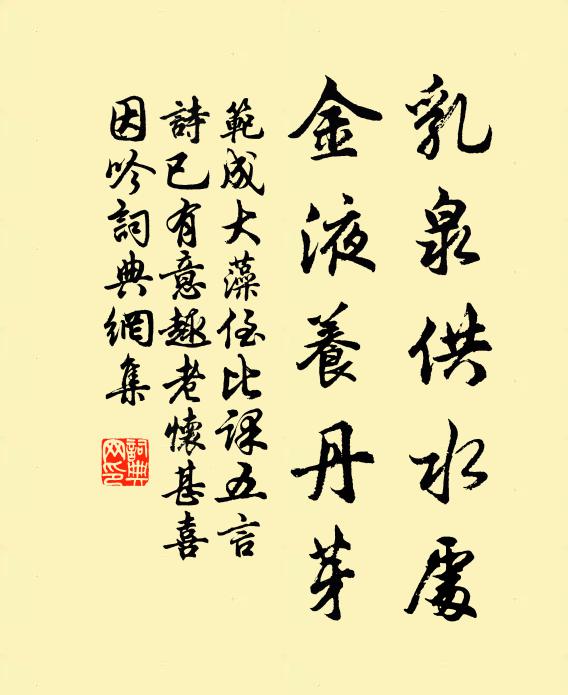 乳泉供水處
金液養丹芽
範成大藻侄比課五言
詩已有意趣老懷甚喜
因吟詞典網集
詞典
网印